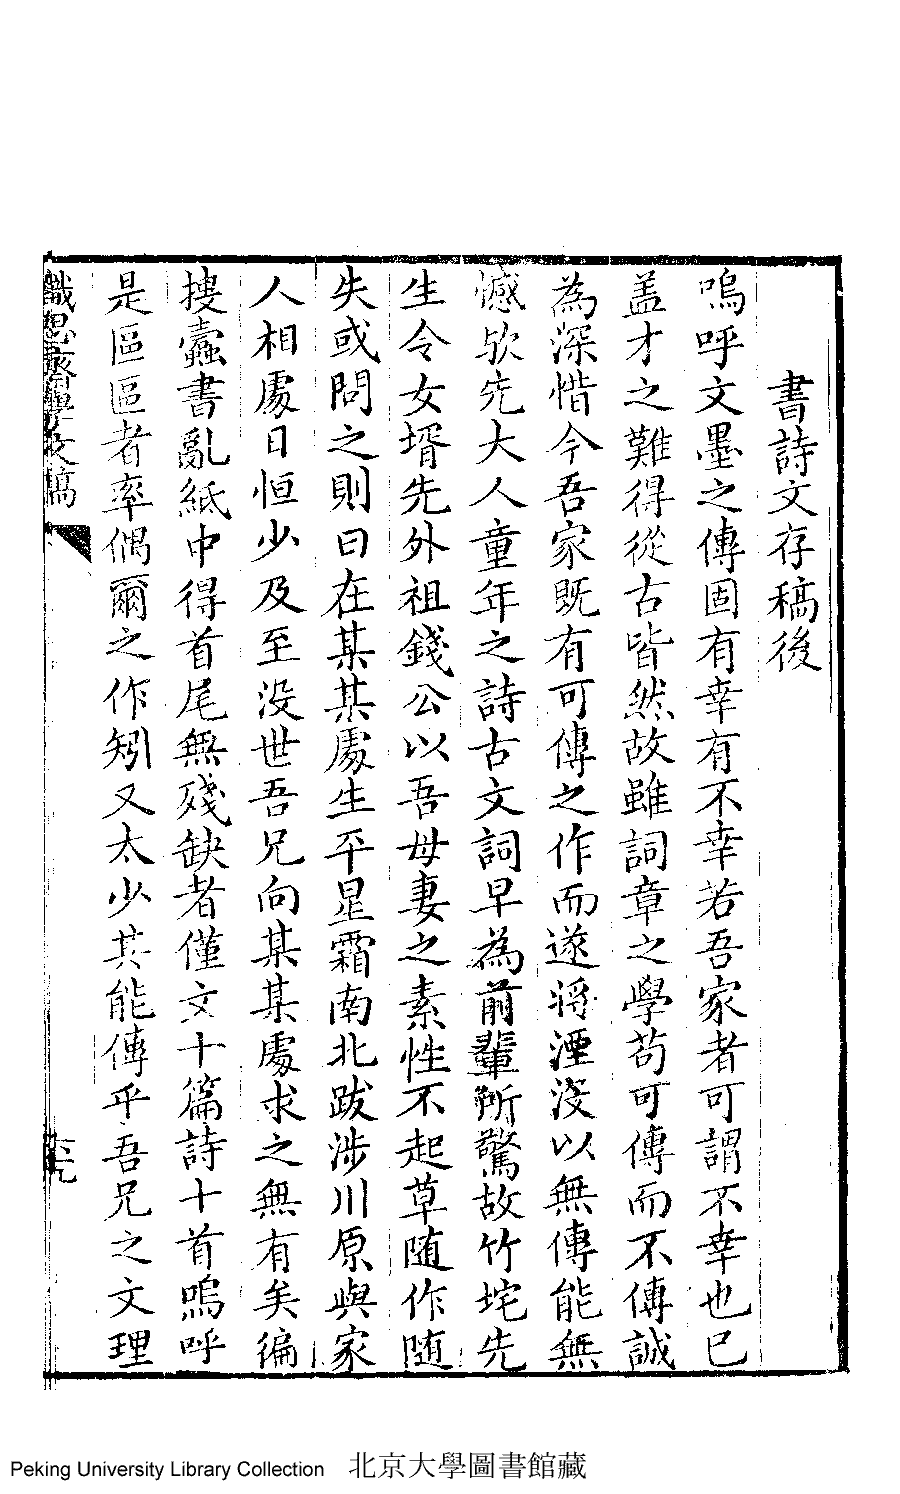 書詩文存稿後
嗚呼文墨之傳固有幸有不幸若吾家者可謂不幸也已
盖才之難得從古皆然故雖詞章之學苟可傳而不傳誠
為深惜今吾家既有可傳之作而遂將湮沒以無傳能無
憾歟先大人童年之詩古文詞早為前輩所驚故竹垞先
生令女壻先外祖錢公以吾母妻之素性不起草隨作隨
失或問之則曰在某某處生平星霜南北跋涉川原與家
人相處日恒少及至没世吾兄向某某處求之無有矣徧
搜蠹書亂紙中得首尾無殘缺者僅文十篇詩十首嗚呼
是區區者率偶爾之作矧又太少其能傳乎吾兄之文理
織思齋學文稿
六九
Peking University Library Collection 北京大學圖書館藏